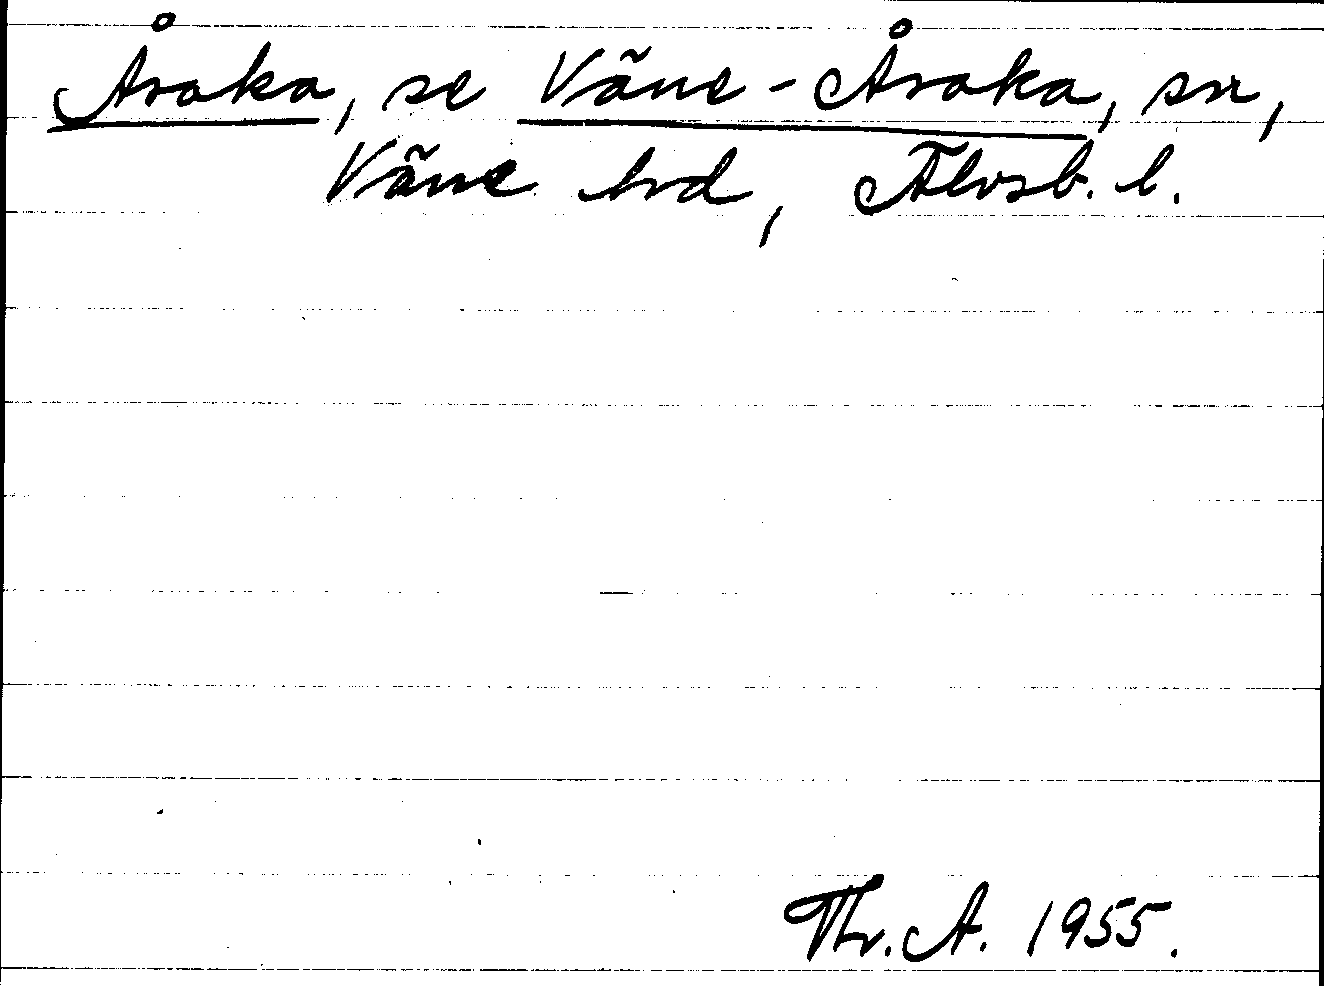 Åsaka, se Väne-Åsaka, sn,
Väne hd, Älvsb. l.
Thr. A. 1955.